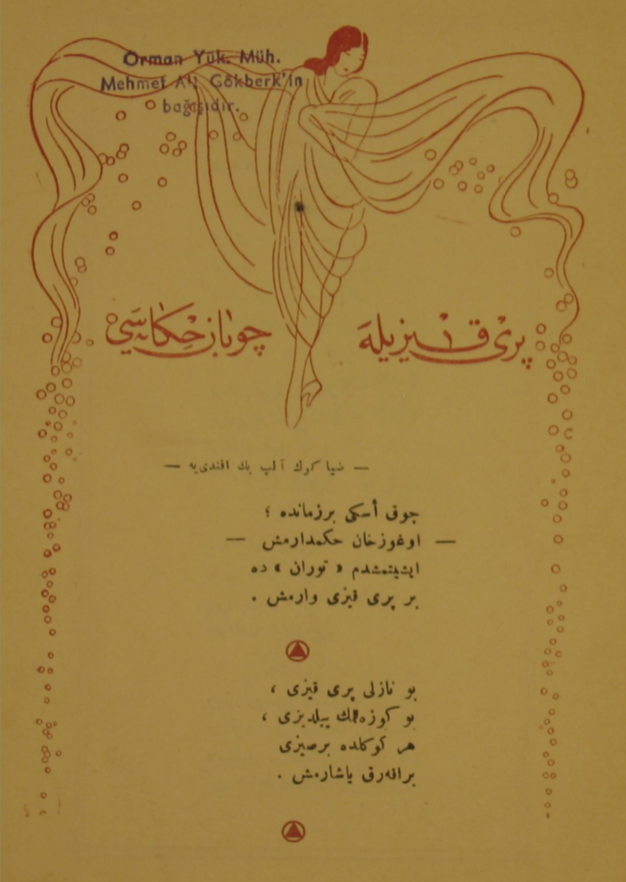 Orman Yük. Müh.
Mehmet Ali Gökberk'in
bağışıdır.
پری قیزیله چوبان حکایه‌سی
— ضیا كوك آلپ بك افندی‌یه —
چوق أسكی برزمانده ؛
— اوغوزخان حكمدارمش —
ایشیتمشدم « توران » ده
بر پری قیزی وارمش .
بو نازلی پری قیزی ،
بو كوزه‌لك ییلدیزی ،
هر كوكلده برصیزی
براقه‌رق یاشارمش .